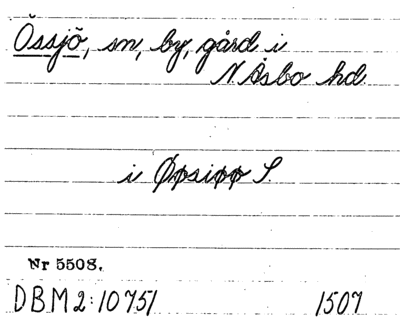 Össjö, sn, by, gård i
N Åsbo hd
i Øpsiøø S.
Nr 5508.
DBM 2:10751 1507